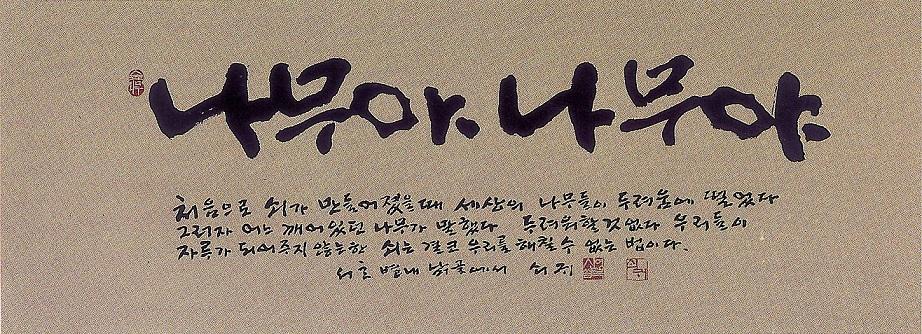 나무야. 나무야.
처음으로 쇠가 만들어졌을때 세상의 나무들이 두려움에 떨었다
그러자 어느 깨어있던 나무가 말했다 두려워할것없다 우리들이
자루가 되어주지 않는한 쇠는 결코 우리를 해칠수 없는 법이다.
서호 별내 에서 쇠귀